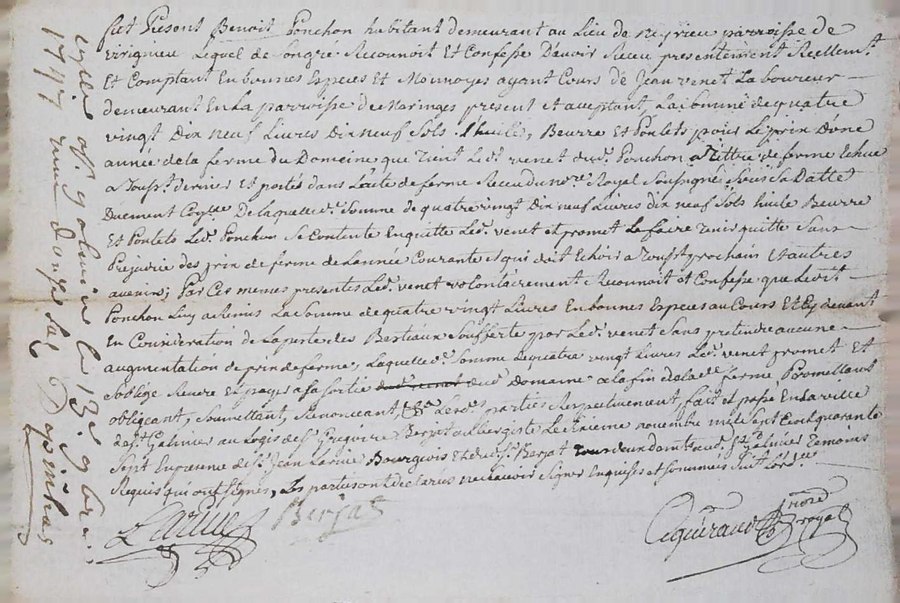 fut Présent Benoit Ponchon habitant demeurant au Lieu de parroisse de
virigneu Lequel de Songré Reconnoit Et Confesse D'avoir Receu presentement Reellemt
Et Comptant En bonnes Especes Et Monnoyes ayant Cours de Jean venet Laboureur
demeurant En La parroisse de Maringes present et aceptant, La somme de quatre
vingt Dix neuf Livres Dix neuf Sols huile, Beurre Et Poulets pour Le prix Dune
année de la ferme du Domaine que Tient Led. venet dud. Ponchon a Tittre de ferme Echue
a Toust. dernier Et portés dans Lacte de ferme Receu du nore Royal Soussigné Sous Sa Datte
Duement Coллé De laquelle de. Somme de quatre vingt Dix neuf Livres dix neuf Sols huile Beurre
Et Poulets Led. Ponchon Se Contente En quitte Led. venet et promet Le faire tenir quitte Sans
Prejudice des prix de ferme de Lannée Courante et qui doit Echoir a Toust. prochain Et autres
avenir; Par Ces memes presentes Led. venet volontairement Reconnoit et Confesse que Ledit
Ponchon Luy a Remis La Somme de quatre vingt Livres En bonnes Especes au Cours Et Cy devant
En Consideration de La perte des Bestiaux Soufferte par Led. venet Sans pretendre aucune
augmentation de prix de ferme, Laquelle de. Somme de quatre vingt Livres Led. venet promet Et
Soblige Rendre Et payer a Sa Sortie dud. Domaine a la fin de lade. ferme, Promettant
obligeant, Soumettant, Renonceant, Lesd. parties Respectivement, fait et passé En La ville
de St. Galmier au Logis de Sr. Grégoire Berjat aubergiste Le treizieme novembre mil Sept Cent quarante
Sept En presence de Sr. Jean Larue Bourgois Et dud. Sr. Berjat Tous deux demts. aud. St. Galmier Temoins
Requis qui ont Signés, Les parties ont declaré ne Scavoir Signer Enquises et Sommées Suivt. Lord.ce
Larue
Berjat
Nore Royal
a St. Galmier Le 13e. 9bre.
1747 douze Sols